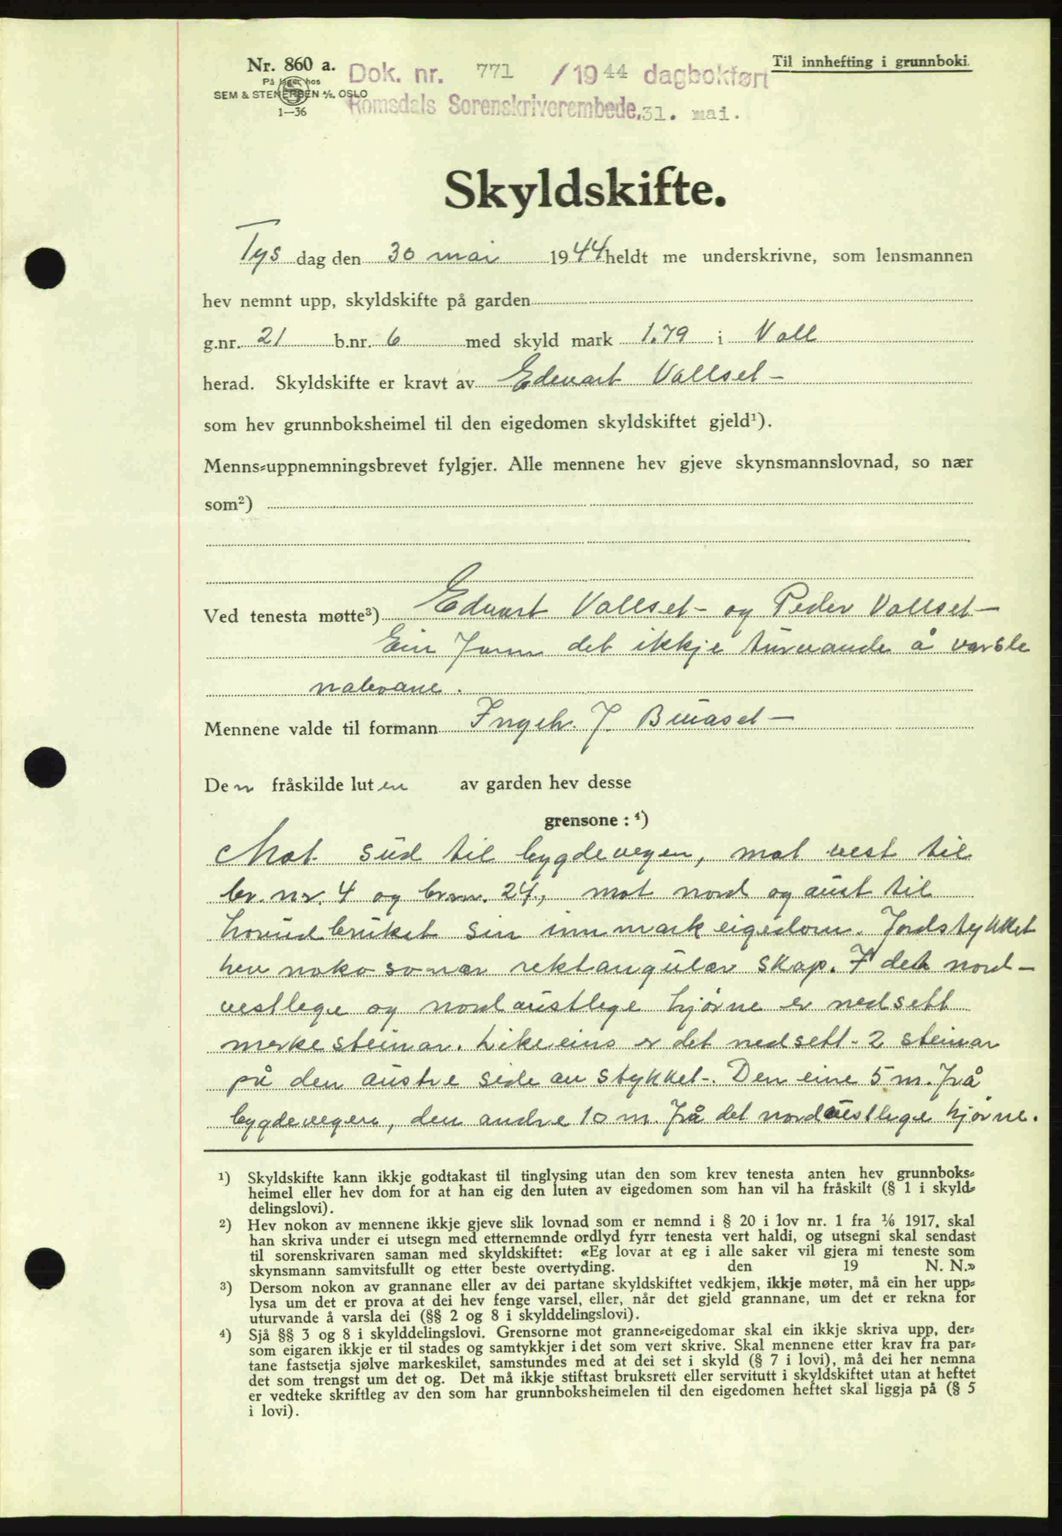 Nr. 860 a.
Til innhefting i grunnboki.
På lager hos
SEM & STENERSEN A/S. OSLO
1—36
Dok. nr. 771 /1944 dagbokført
Romsdals Sorenskriverembede, 31. mai.
Skyldskifte.
Tys dag den 30 mai 1944 heldt me underskrivne, som lensmannen
hev nemnt upp, skyldskifte på garden
g.nr. 21 b.nr. 6 med skyld mark 1.79 i Voll
herad. Skyldskifte er kravt av Edvart Vollset-
som hev grunnboksheimel til den eigedomen skyldskiftet gjeld¹).
Menns-uppnemningsbrevet fylgjer. Alle mennene hev gjeve skynsmannslovnad, so nær
som²)
Ved tenesta møtte³) Edvart Vollset- og Peder Vollset-
Ein fann det ikkje turvande å varsle
naboane.
Mennene valde til formann Ingebr. J. Buaset-
Den fråskilde luten av garden hev desse
grensone : ⁴)
Mot sud til bygdevegen, mot vest til
br. nr. 4 og br.nr. 24, mot nord og aust til
hovudbruket sin innmarkeigedom. Jordstykket
hev noko so nær rektangulær skap. I det nord-
vestlege og nordaustlege hjørne er nedsett
merkesteinar. Likeeins er det nedsett- 2 steinar
på den austre side av stykket-. Den eine 5 m. frå
bygdevegen, den andre 10 m. frå det nordaustlege hjørne.
¹) Skyldskifte kann ikkje godtakast til tinglysing utan den som krev tenesta anten hev grunnboks-
heimel eller hev dom for at han eig den luten av eigedomen som han vil ha fråskilt (§ 1 i skyld-
delingslovi).
²) Hev nokon av mennene ikkje gjeve slik lovnad som er nemnd i § 20 i lov nr. 1 fra ¹⁄₆ 1917, skal
han skriva under ei utsegn med etternemnde ordlyd fyrr tenesta vert haldi, og utsegni skal sendast
til sorenskrivaren saman med skyldskiftet: «Eg lovar at eg i alle saker vil gjera mi teneste som
skynsmann samvitsfullt og etter beste overtyding. den 19 N. N.»
³) Dersom nokon av grannane eller av dei partane skyldskiftet vedkjem, ikkje møter, må ein her upp-
lysa um det er prova at dei hev fenge varsel, eller, når det gjeld grannane, um det er rekna for
uturvande å varsla dei (§§ 2 og 8 i skylddelingslovi).
⁴) Sjå §§ 3 og 8 i skylddelingslovi. Grensorne mot granne-eigedomar skal ein ikkje skriva upp, der-
som eigaren ikkje er til stades og samtykkjer i det som vert skrive. Skal mennene etter krav fra par-
tane fastsetja sjølve markeskilet, samstundes med at dei set i skyld (§ 7 i lovi), må dei her nemna
det som trengst um det og. Det må ikkje stiftast bruksrett eller servitutt i skyldskiftet utan at heftet
er vedteke skriftleg av den som har grunnboksheimelen til den eigedomen heftet skal liggja på (§ 5
i lovi).